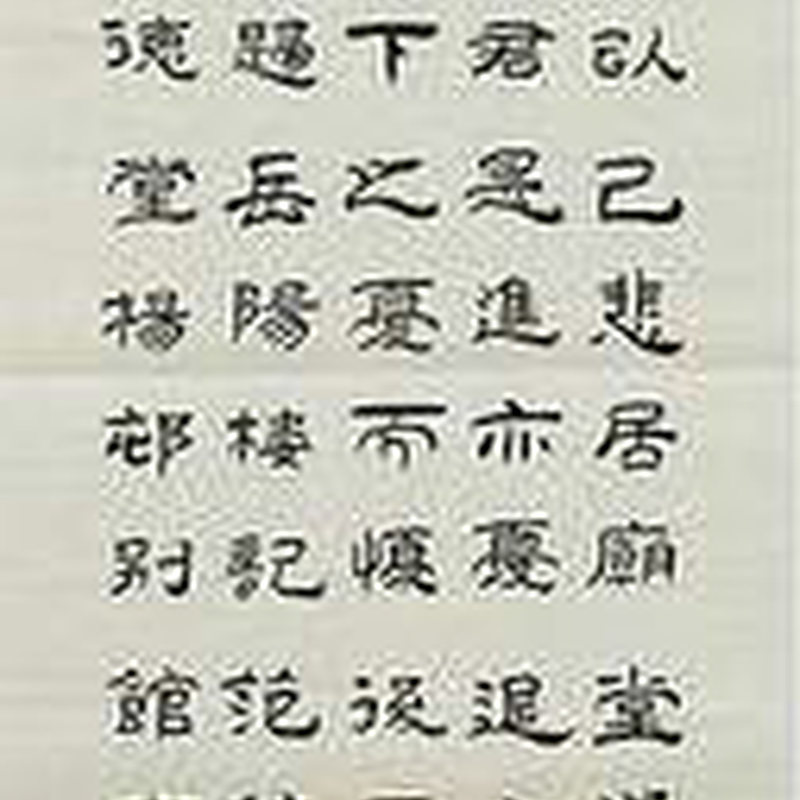 以己悲居廟堂
君是進亦憂退
下之憂而後
題岳陽樓記范
德堂楊邨別館